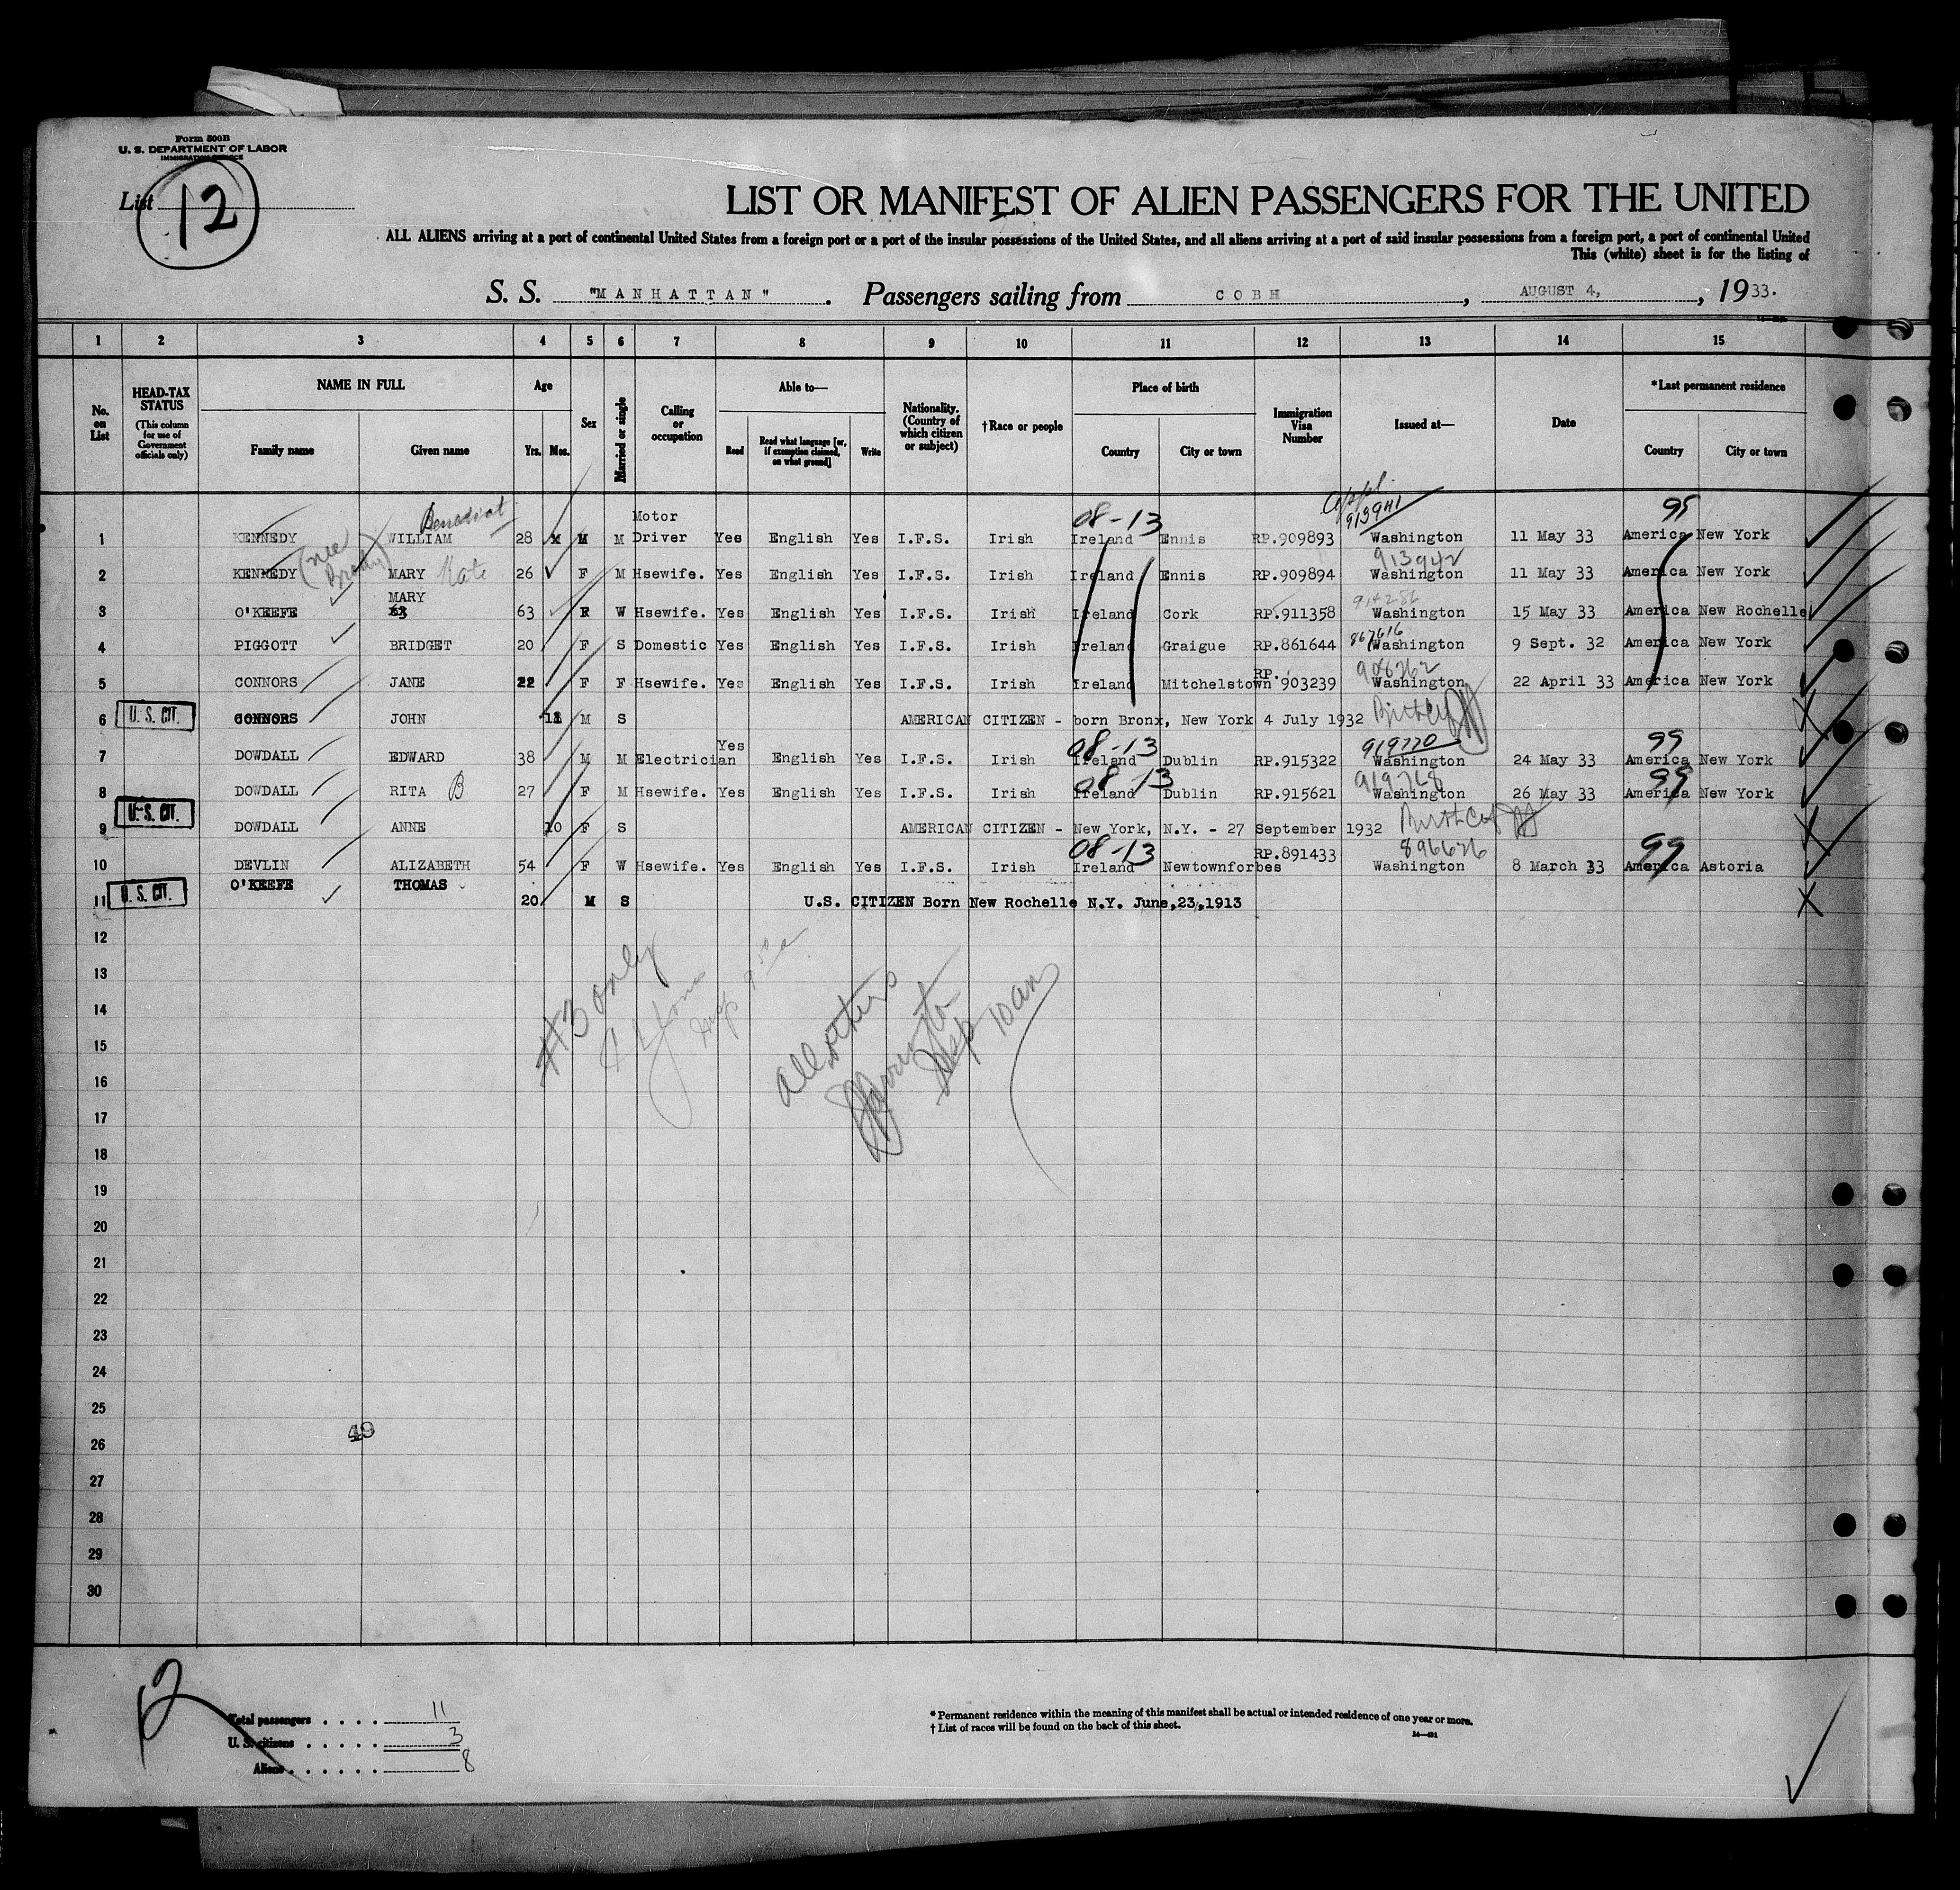 Form 500B
U. S. DEPARTMENT OF LABOR
IMMIGRATION SERVICE
List 12
LIST OR MANIFEST OF ALIEN PASSENGERS FOR THE UNITED
ALL ALIENS arriving at a port of continental United States from a foreign port or a port of the insular possessions of the United States, and all aliens arriving at a port of said insular possessions from a foreign port, a port of continental United
This (white) sheet is for the listing of
S. S. "MANHATTAN". Passengers sailing from COBH, AUGUST 4, 1933.
1 2 3 4 5 6 7 8 9 10 11 12 13 14 15
No. on List
HEAD-TAX STATUS (This column for use of Government officials only)
NAME IN FULL Family name Given name
Age Yrs. Mos.
Sex
Married or single
Calling or occupation
Able to— Read Read what language [or, if exemption claimed, on what ground] Write
Nationality. (Country of which citizen or subject)
†Race or people
Place of birth Country City or town
Immigration Visa Number
Issued at—
Date
*Last permanent residence Country City or town
Benedict 08-13 appl. 913941 99
1 KENNEDY WILLIAM 28 M M Motor Driver Yes English Yes I.F.S. Irish Ireland Ennis RP.909893 Washington 11 May 33 America New York
(nee Brody) Kate 913942
2 KENNEDY MARY 26 F M Hsewife. Yes English Yes I.F.S. Irish Ireland Ennis RP.909894 Washington 11 May 33 America New York
914286
3 O'KEEFE MARY 63 F W Hsewife. Yes English Yes I.F.S. Irish Ireland Cork RP.911358 Washington 15 May 33 America New Rochelle
867616
4 PIGGOTT BRIDGET 20 F S Domestic Yes English Yes I.F.S. Irish Ireland Graigue RP.861644 Washington 9 Sept. 32 America New York
908262
5 CONNORS JANE 22 F F Hsewife. Yes English Yes I.F.S. Irish Ireland Mitchelstown RP. 903239 Washington 22 April 33 America New York
6 U. S. CIT. CONNORS JOHN M S AMERICAN CITIZEN - born Bronx, New York 4 July 1932
08-13 919770 99
7 DOWDALL EDWARD 38 M M Electrician Yes English Yes I.F.S. Irish Ireland Dublin RP.915322 Washington 24 May 33 America New York
08-13 919768 99
8 DOWDALL RITA B 27 F M Hsewife. Yes English Yes I.F.S. Irish Ireland Dublin RP.915621 Washington 26 May 33 America New York
9 U. S. CIT. DOWDALL ANNE 10 F S AMERICAN CITIZEN - New York, N.Y. - 27 September 1932 Birth Cert
08-13 896626 99
10 DEVLIN ALIZABETH 54 F W Hsewife. Yes English Yes I.F.S. Irish Ireland Newtownforbes RP.891433 Washington 8 March 33 America Astoria
11 U. S. CIT. O'KEEFE THOMAS 20 M S U.S. CITIZEN Born New Rochelle N.Y. June,23,1913
12
13
14
15
16
17
18
19
20
21
22
23
24
25
26
27
28
29
30
#3 only
all others
10 am
49
12
Total passengers . . . . 11
U. S. citizens . . . . . 3
Aliens . . . . . . 8
* Permanent residence within the meaning of this manifest shall be actual or intended residence of one year or more.
† List of races will be found on the back of this sheet.